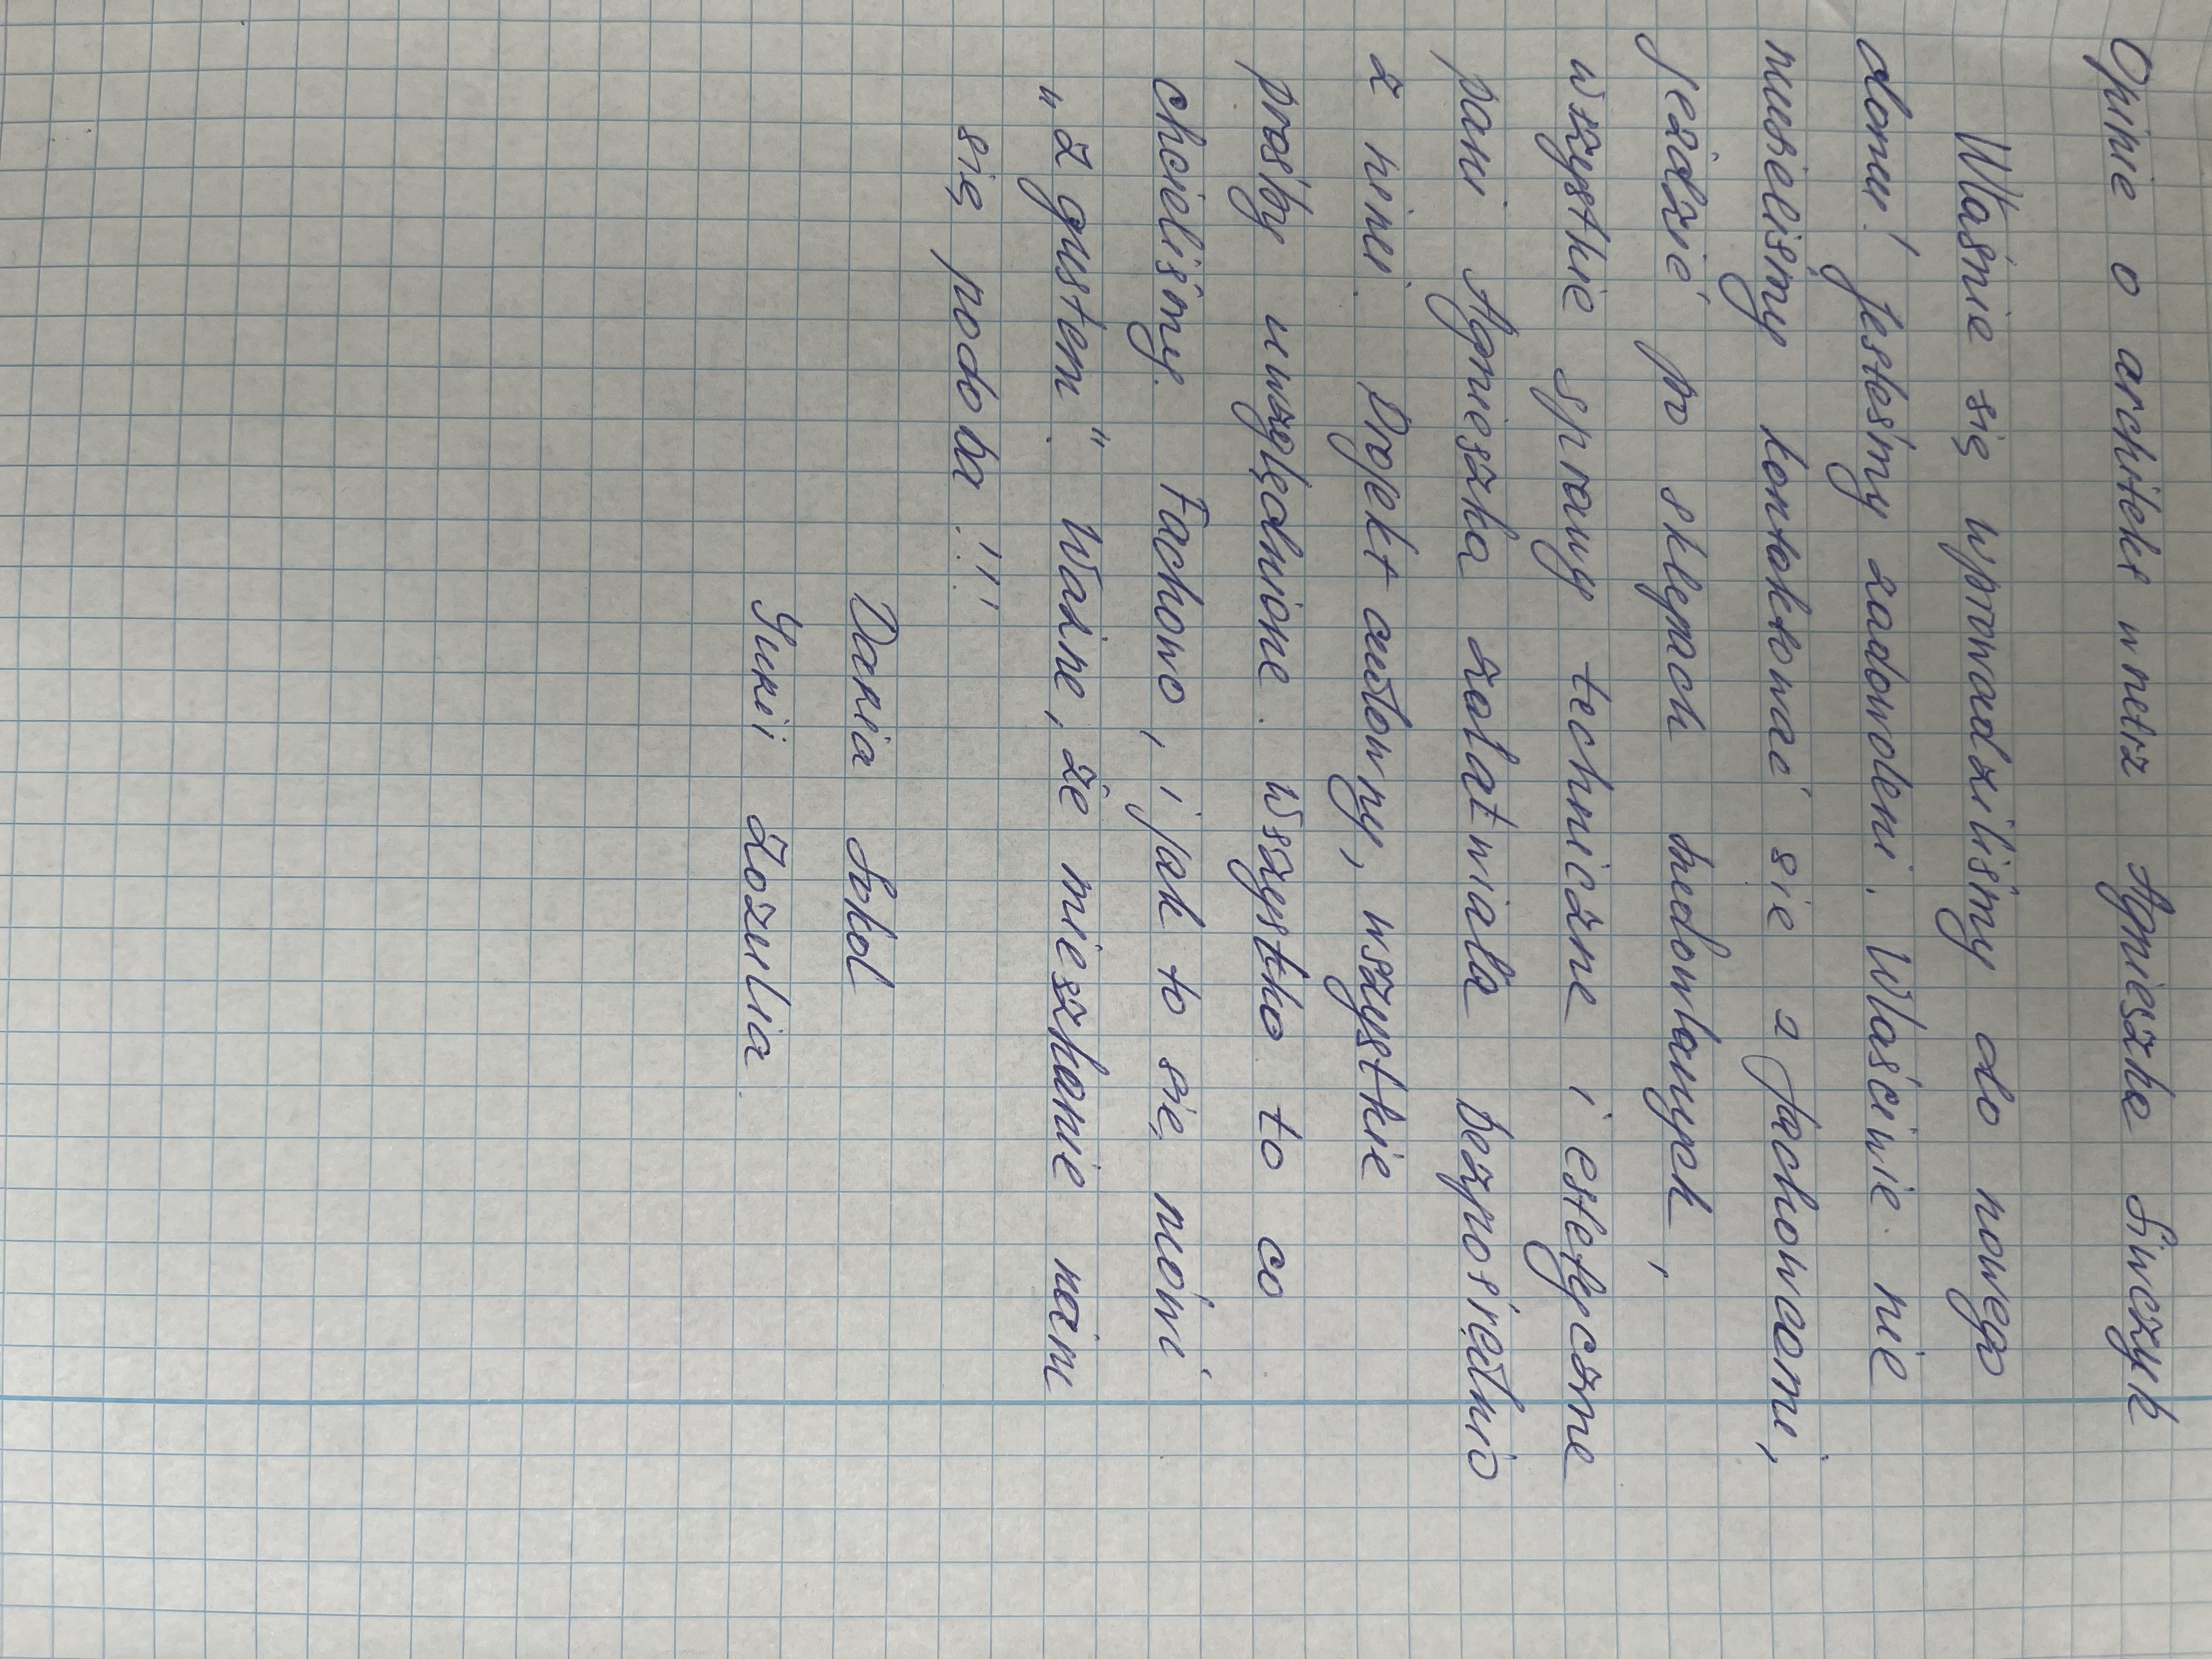 Opinie o architekt wnetrz Agnieszke Sinczyk
Właśnie się wprowadziliśmy do nowego
domu! Jesteśmy zadowoleni. Właściwie nie
musieliśmy kontaktować sie z fachowcami,
jeździć po sklepach medowlanych,
wszystkie sprawy techniczne i estetyczne
pani Agnieszka załatwiała bezpośrednio
z nimi. Projekt cudowny, wszystkie
prośby uwzględnione. Wszystko to co
chcieliśmy. Fachowo, i jak to się mówi
"z gustem". Ważne, że mieszkanie nam
się podoba!!!
Daria Sokol
Yurii Zozulia